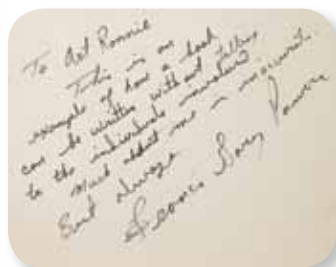 To Art Ronnie
This is an
example of how a book
can be written without talking
to the individuals involved.
Much about me is inaccurate.
Best Always
Francis Gary Powers